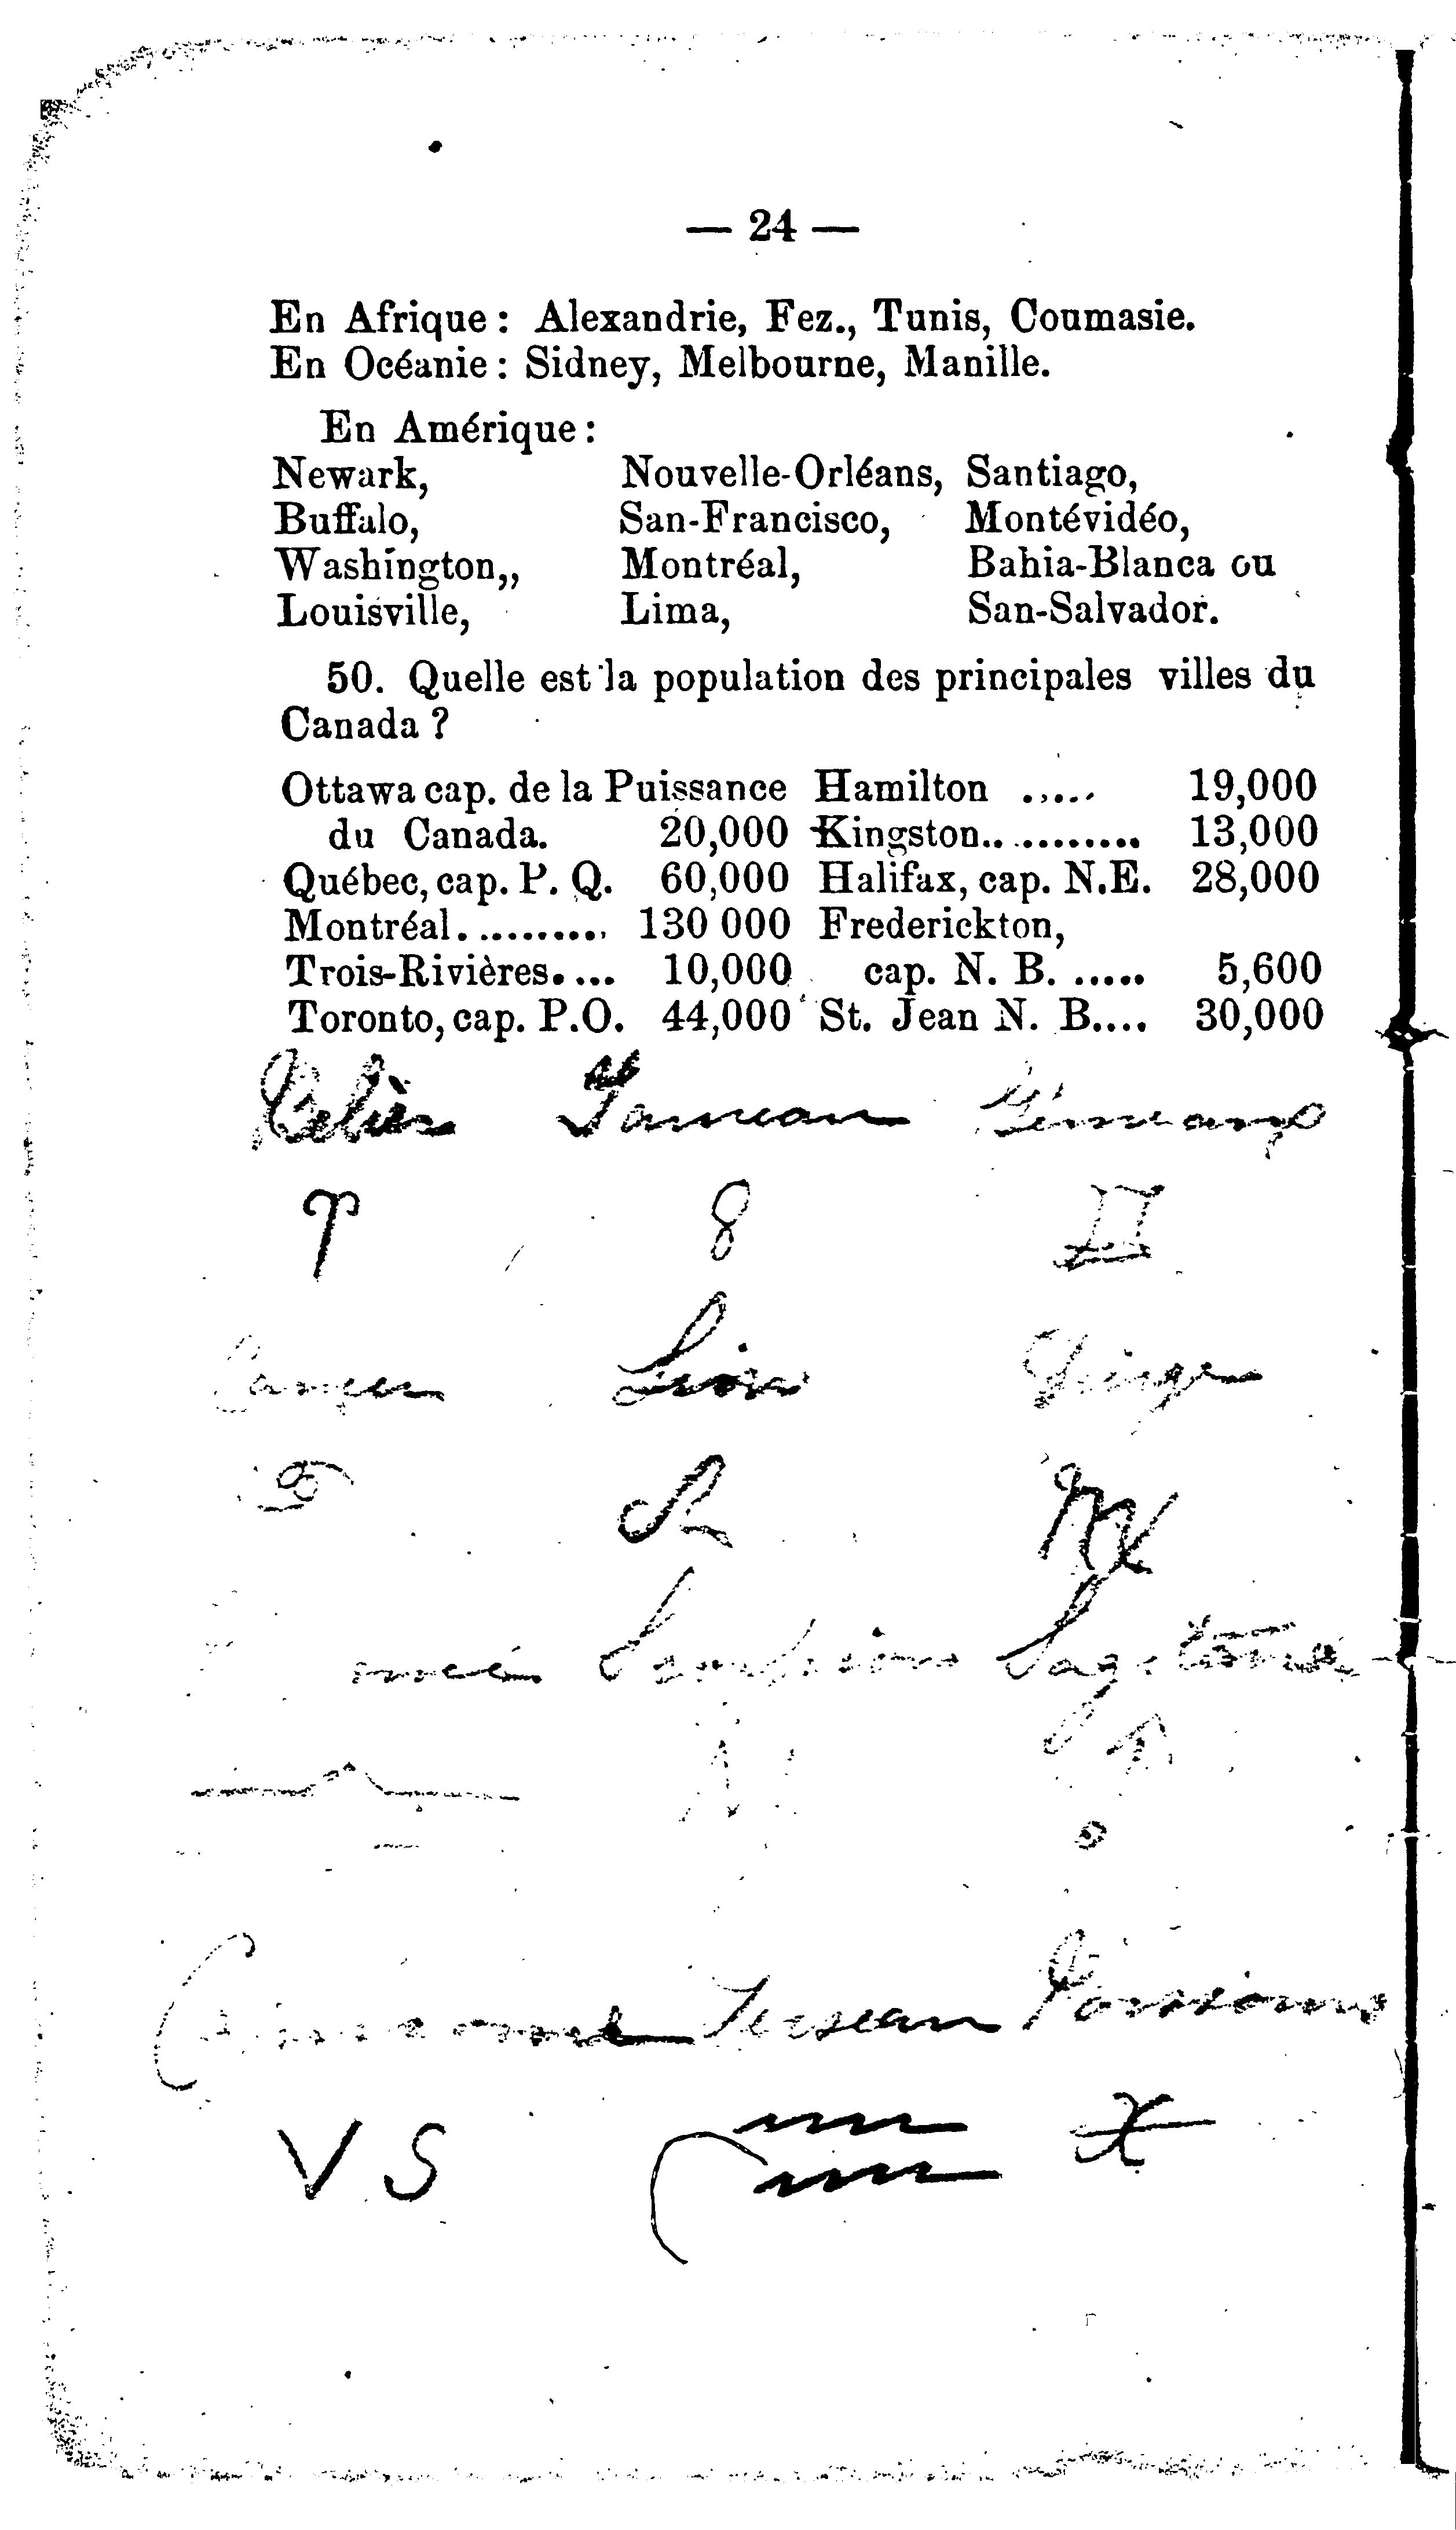 — 24 —
En Afrique : Alexandrie, Fez., Tunis, Coumasie.
En Océanie : Sidney, Melbourne, Manille.
En Amérique :
Newark, Nouvelle-Orléans, Santiago,
Buffalo, San-Francisco, Montévidéo,
Washington,, Montréal, Bahia-Blanca ou
Louisville, Lima, San-Salvador.
50. Quelle est la population des principales villes du
Canada ?
Ottawa cap. de la Puissance
du Canada. 20,000
Québec, cap. P. Q. 60,000
Montréal.......... 130 000
Trois-Rivières.... 10,000
Toronto, cap. P.O. 44,000
Hamilton ..... 19,000
Kingston........... 13,000
Halifax, cap. N.E. 28,000
Frederickton,
cap. N. B. ..... 5,600
St. Jean N. B.... 30,000
♈ ♉ ♊
Lion
♋ ♌ ♍
V S